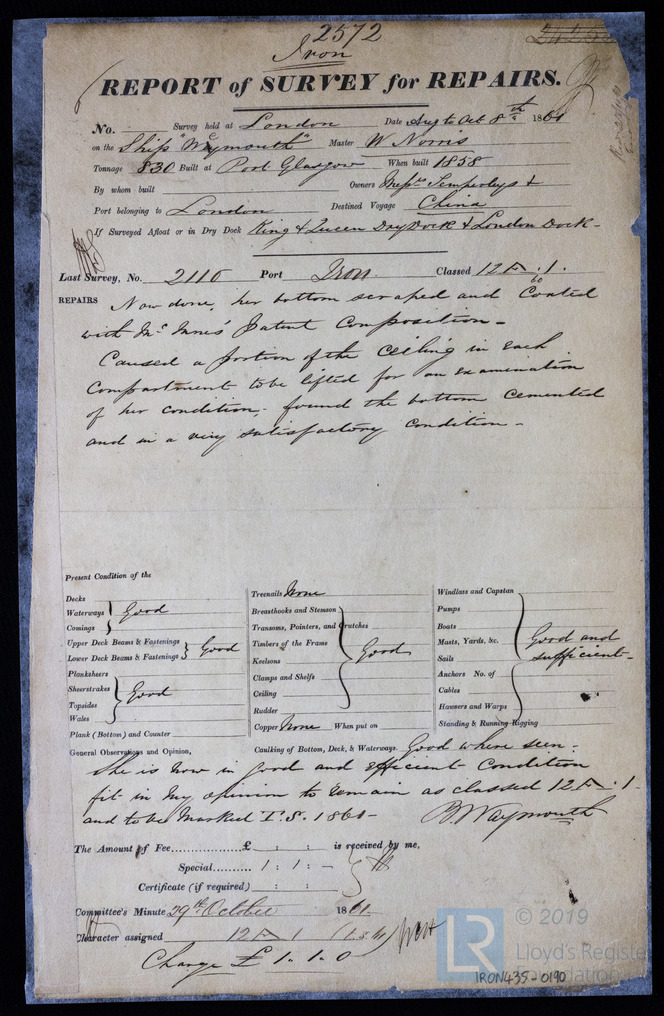 2572
Iron
REPORT of SURVEY for REPAIRS.
No. Survey held at London Date Aug to Oct 8th 1861
on the Ship "Weymouth" Master W Norris
Tonnage 830 Built at Port Glasgow When built 1858
By whom built Owners Messrs Temperleys &
Port belonging to London Destined Voyage China
If Surveyed Afloat or in Dry Dock King & Queen Dry Dock & London Dock -
Last Survey, No. 2110 Port Iron Classed 12 A . 1.
60
REPAIRS Now done, her bottom scraped and Coated
with Mc Innes' Patent Composition -
Caused a portion of the Ceiling in each
Compartment to be lifted for an examination
of her condition, found the bottom cemented
and in a very satisfactory condition -
Present Condition of the
Decks
Waterways Good
Comings
Upper Deck Beams & Fastenings Good
Lower Deck Beams & Fastenings
Planksheers
Sheerstrakes Good
Topsides
Wales
Plank (Bottom) and Counter
Treenails None
Breasthooks and Stemson
Transoms, Pointers, and Crutches
Timbers of the Frame Good
Keelsons
Clamps and Shelfs
Ceiling
Rudder
Copper None When put on
Windlass and Capstan
Pumps
Boats
Masts, Yards, &c. Good and
Sails sufficient -
Anchors No. of
Cables
Hawsers and Warps
Standing & Running Rigging
General Observations and Opinion, Caulking of Bottom, Deck, & Waterways. Good where seen.
She is now in good and efficient Condition
fit in my opinion to remain as classed 12 A . 1.
and to be Marked I.S. 1861 - B Waymouth
The Amount of Fee............... £ : : is received by me,
Special......... 1 : 1 : -
Certificate (if required) : :
Committee's Minute 29th October 1861.
Character assigned 12 A 1
Charge £ 1. 1. 0
LR © 2019
Lloyd's Register
Foundation
IRON435-0190